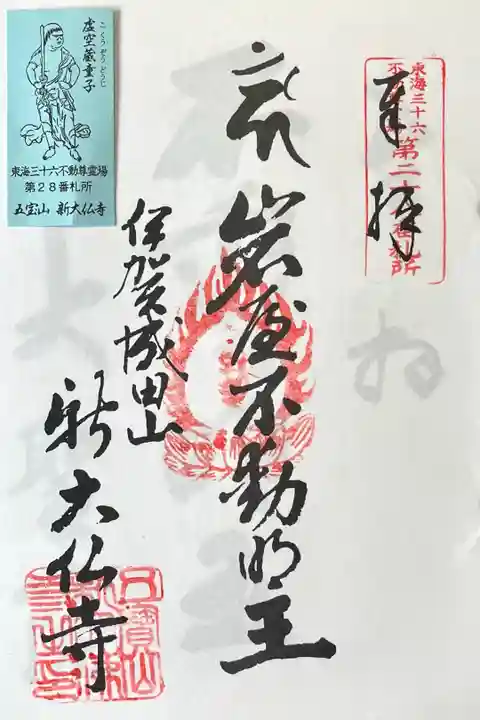 東海三十六
不動
第二十八番札所
奉拝
岩屋不動明王
伊賀成田山
新大仏寺
五寳山
こくうぞうどうじ
虚空蔵童子
東海三十六不動尊霊場
第28番札所
五宝山 新大仏寺